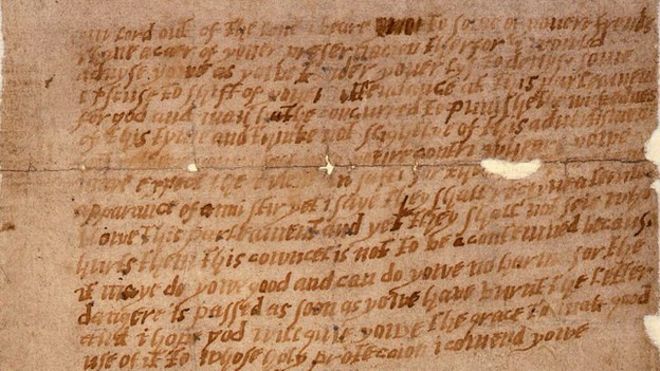 my lord out of the love i beare to some of youere frends
i have a caer of youer preservacion therfor i would
advyse yowe as yowe tender youer lyf to devyse some
excuse to shift of youer attendance at this parleament
for god and man hathe concurred to punishe the wickednes
of this tyme and thinke not slightlye of this advertisment
but youre self contri wheare yowe
maye expect the event in safti for
apparance of anni stir yet i saye they shall receyve a terrible
blowe this parleament and yet they shall not seie who
hurts them this cowncel is not to be a contemned becaus
it maye do yowe good and can do yowe no harme for the
dangere is passed as soon as yowe have burnt the letter
and i hope god will give yowe the grace to mak good
use of it to whose holy proteccion i comend yowe